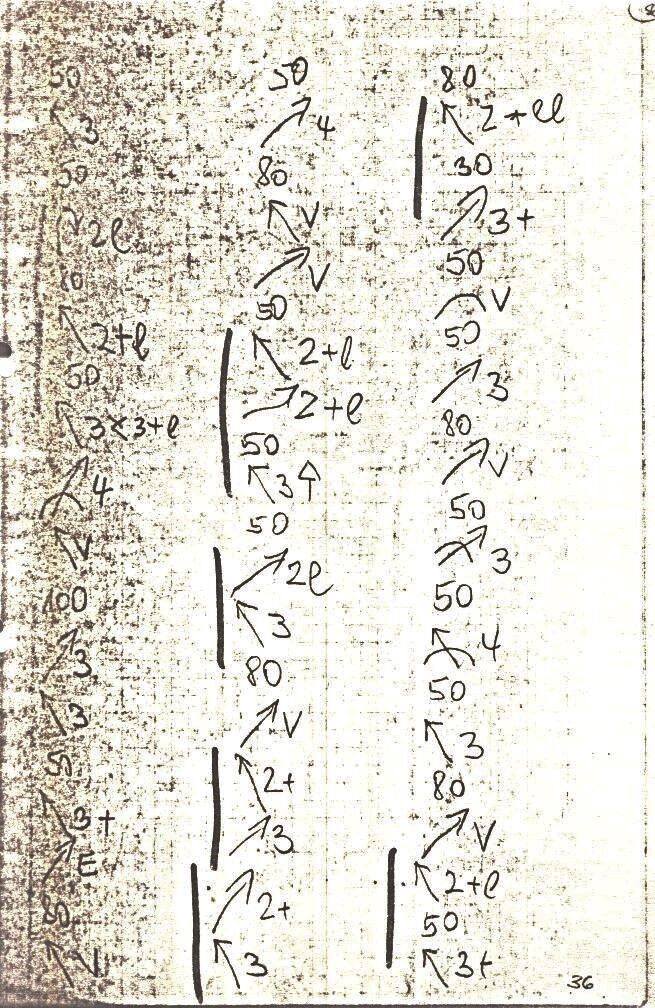 50
↖ 3
50
2l
↖ 2+l
50
↖ 3×3+l
↗ 4
↖ V
100
↗ 3
↖ 3
↖ 3+
↗ E
80
↖ V
50
↗ 4
80
↖ V
↗ V
50
↖ 2+l
↗ 2+l
50
↖ 3↑
50
↗ 2l
↖ 3
80
↗ V
↖ 2+
↗ 3
↗ 2+
↖ 3
80
↖ 2+ll
30
↗ 3+
50
V
50
↗ 3
80
↗ V
50
↗ 3
50
↖ 4
50
↖ 3
80
↗ V
↖ 2+l
50
↖ 3+
36